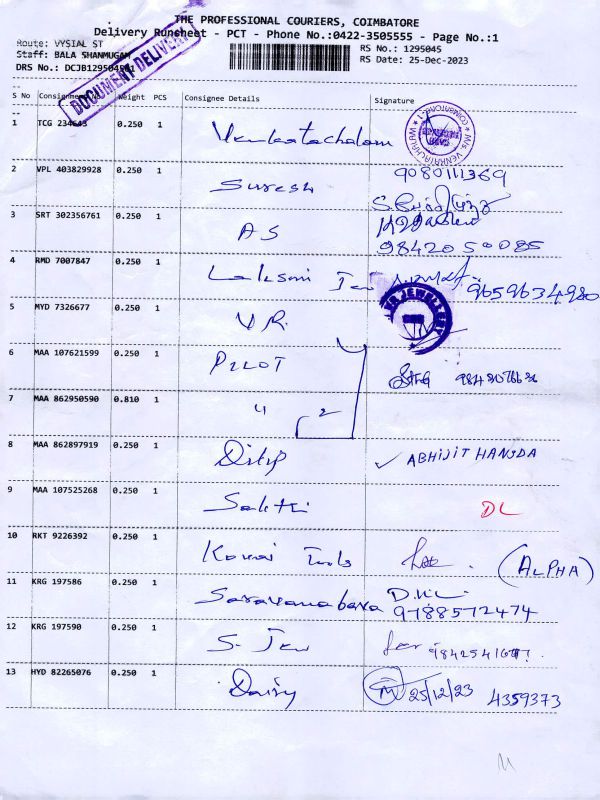 THE PROFESSIONAL COURIERS, COIMBATORE
Delivery Runsheet - PCT - Phone No.:0422-3505555 - Page No.:1
Route: VYSIAL ST
RS No.: 1295045
Staff: BALA SHANMUGAM
RS Date: 25-Dec-2023
DRS No.: DCJB1295045
DOCUMENT DELIVERY
S No Weight PCS Consignee Details Signature
1 TCG 0.250 1 Venkatachalam
2 VPL 403829928 0.250 1 Suresh 9080111369
3 SRT 302356761 0.250 1 AS 9842050085
4 RMD 7007847 0.250 1 Laksmi Jew 9659634980
5 MYD 7326677 0.250 1 V.R. JEWELLERY
6 MAA 107621599 0.250 1 PILOT
7 MAA 862950590 0.810 1 " 2
8 MAA 862897919 0.250 1 Dilip ABHIJIT HANSDA
9 MAA 107525268 0.250 1 Sakthi DL
10 RKT 9226392 0.250 1 Kovai Tools (ALPHA)
11 KRG 197586 0.250 1 Saravanabava 9788572474
12 KRG 197590 0.250 1 S. Jew
13 HYD 82265076 0.250 1 Dairy 25/12/23 4359373